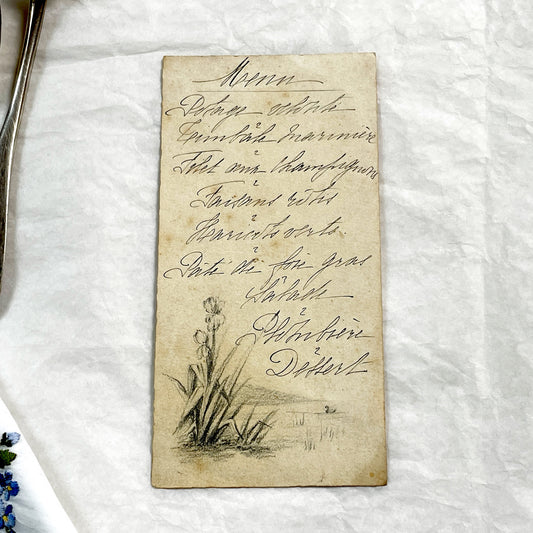 Menu
Potage velouté
Timbale marinière
Filet aux champignons
Faisans rôtis
Haricots verts
Pâté de foie gras
Salade
Plombière
Dessert